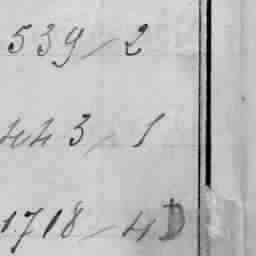 539-2
443-1
1718-4D